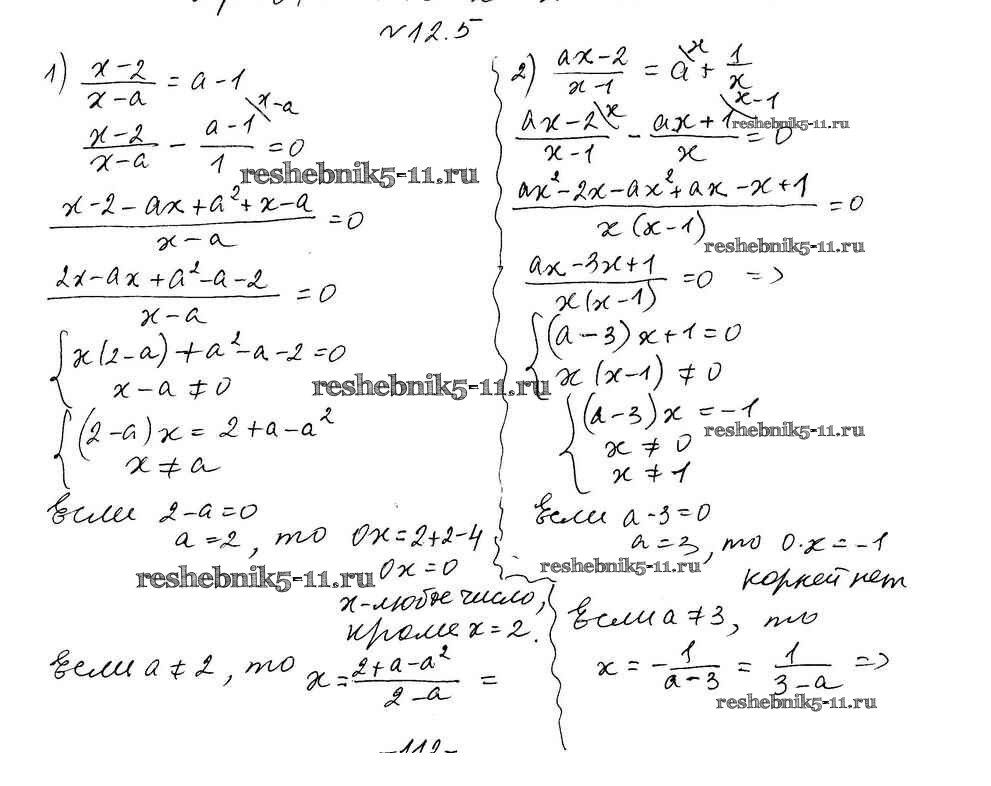 №12.5
1) (x-2)/(x-a) = a-1
(x-2)/(x-a) - (a-1)/1 \x-a = 0
reshebnik5-11.ru
(x-2-ax+a²+x-a)/(x-a) = 0
(2x-ax+a²-a-2)/(x-a) = 0
{ x(2-a)+a²-a-2=0
x-a≠0
reshebnik5-11.ru
{ (2-a)x = 2+a-a²
x≠a
Если 2-a=0
a=2, то 0x=2+2-4
0x=0
reshebnik5-11.ru
x-любое число,
кроме x=2.
Если a≠2, то x = (2+a-a²)/(2-a) =
2) (ax-2)/(x-1) = a\x + 1/x
(ax-2)/(x-1) \x - (ax+1)/x \x-1 = 0
reshebnik5-11.ru
(ax²-2x-ax²+ax-x+1)/(x(x-1)) = 0
reshebnik5-11.ru
(ax-3x+1)/(x(x-1)) = 0 =>
{ (a-3)x+1=0
x(x-1)≠0
{ (a-3)x = -1
reshebnik5-11.ru
x≠0
x≠1
Если a-3=0
a=3, то 0·x=-1
reshebnik5-11.ru
корней нет
Если a≠3, то
x = -1/(a-3) = 1/(3-a) =>
reshebnik5-11.ru